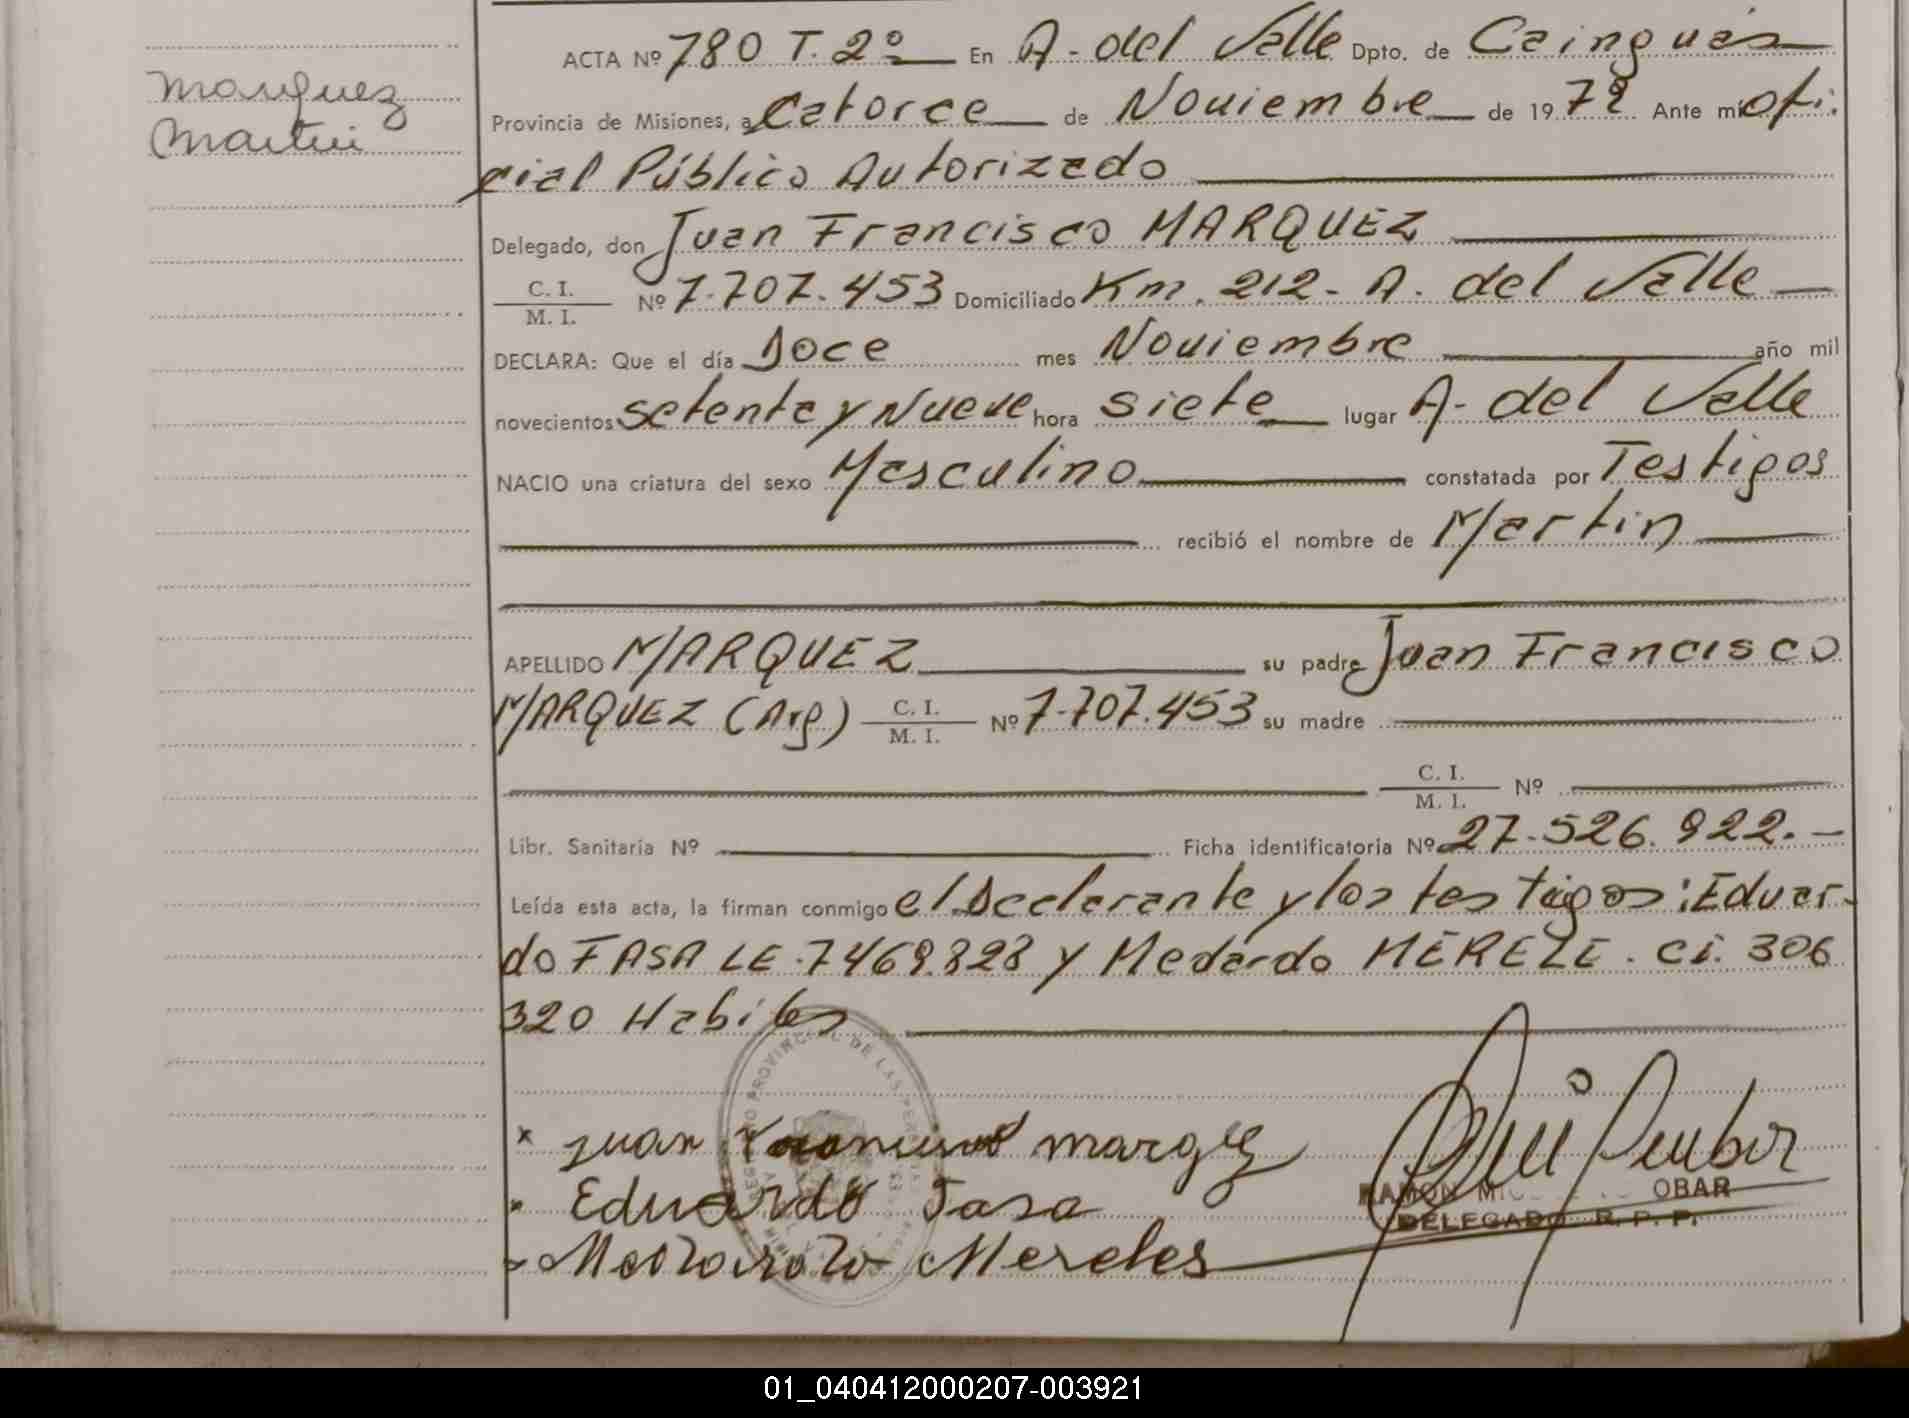 Marquez
Martin
ACTA Nº 780 T. 2º En A. del Valle Dpto. de Cainguás
Provincia de Misiones, a Catorce de Noviembre de 1979 Ante mi Ofi-
cial Público Autorizado
Delegado, don Juan Francisco MARQUEZ
C. I.
M. I. Nº 7.707.453 Domiciliado Km. 212 - A. del Valle
DECLARA: Que el día Doce mes Noviembre año mil
novecientos setenta y Nueve hora siete lugar A. del Valle
NACIO una criatura del sexo Masculino constatada por Testigos
recibió el nombre de Martin
APELLIDO MARQUEZ su padre Juan Francisco
MARQUEZ (Arg) C. I.
M. I. Nº 7.707.453 su madre
C. I.
M. I. Nº
Libr. Sanitaria Nº Ficha identificatoria Nº 27.526.922.-
Leída esta acta, la firman conmigo el Declarante y los testigos: Eduar-
do FASA LE. 7469.828 y Medardo MERELE. CI. 306
320 Habiles
REGISTRO PROVINCIAL DE LAS PERSONAS
x Juan marqz
x Eduardo Fasa
x Medardo Mereles
RAMON OBAR
DELEGADO R. P. P.
01_040412000207-003921